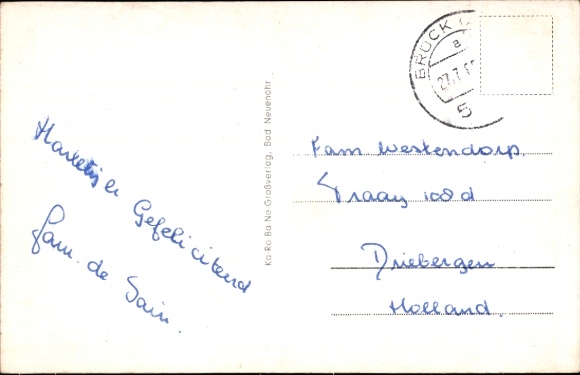 Hartelijk Gefeliciteerd
fam. de
Ka-Ro-Ba Na-Großverlag, Bad Neuenahr
BRÜCK
a
27.7.
5
Fam Westendorp.
Traay 108 d
Driebergen
Holland.